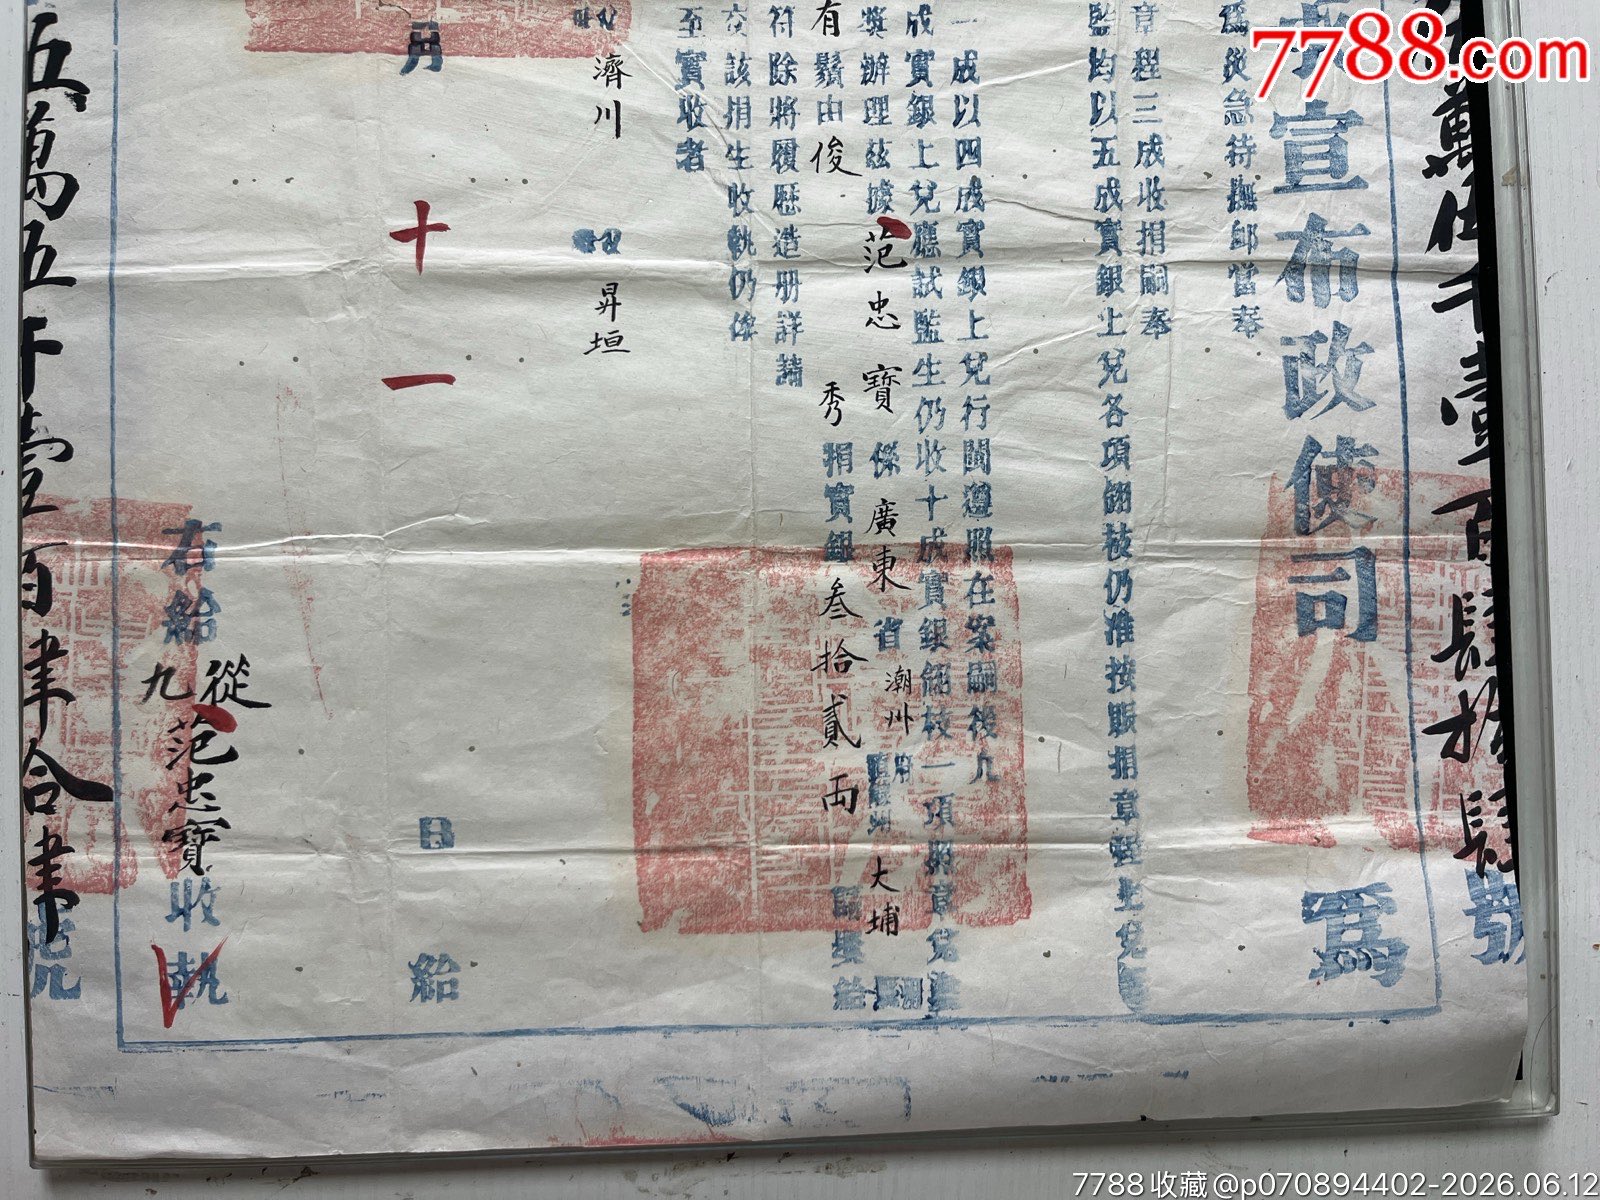 7788.com
宣布政使司為
為災急待撫卹當奉
章程三成收捐嗣奉
監均以五成實銀上兌各項銜枝仍准按賑捐章程上兌
一成以四成實銀上兌行閩遵照在案嗣後九
成實銀上兌應試監生仍收十成實銀銜枝一項照章兌
獎辦理茲據范忠寶係廣東省潮州府大埔
有鬚由俊秀捐實銀叁拾貳兩請獎給
符除將履歷造册詳請
交該捐生收執仍俾
至實收者
濟川
昇垣
月十一日給
右給從九范忠寶收執
五萬五千壹百肆拾肆號
7788收藏@p070894402-2026.06.12